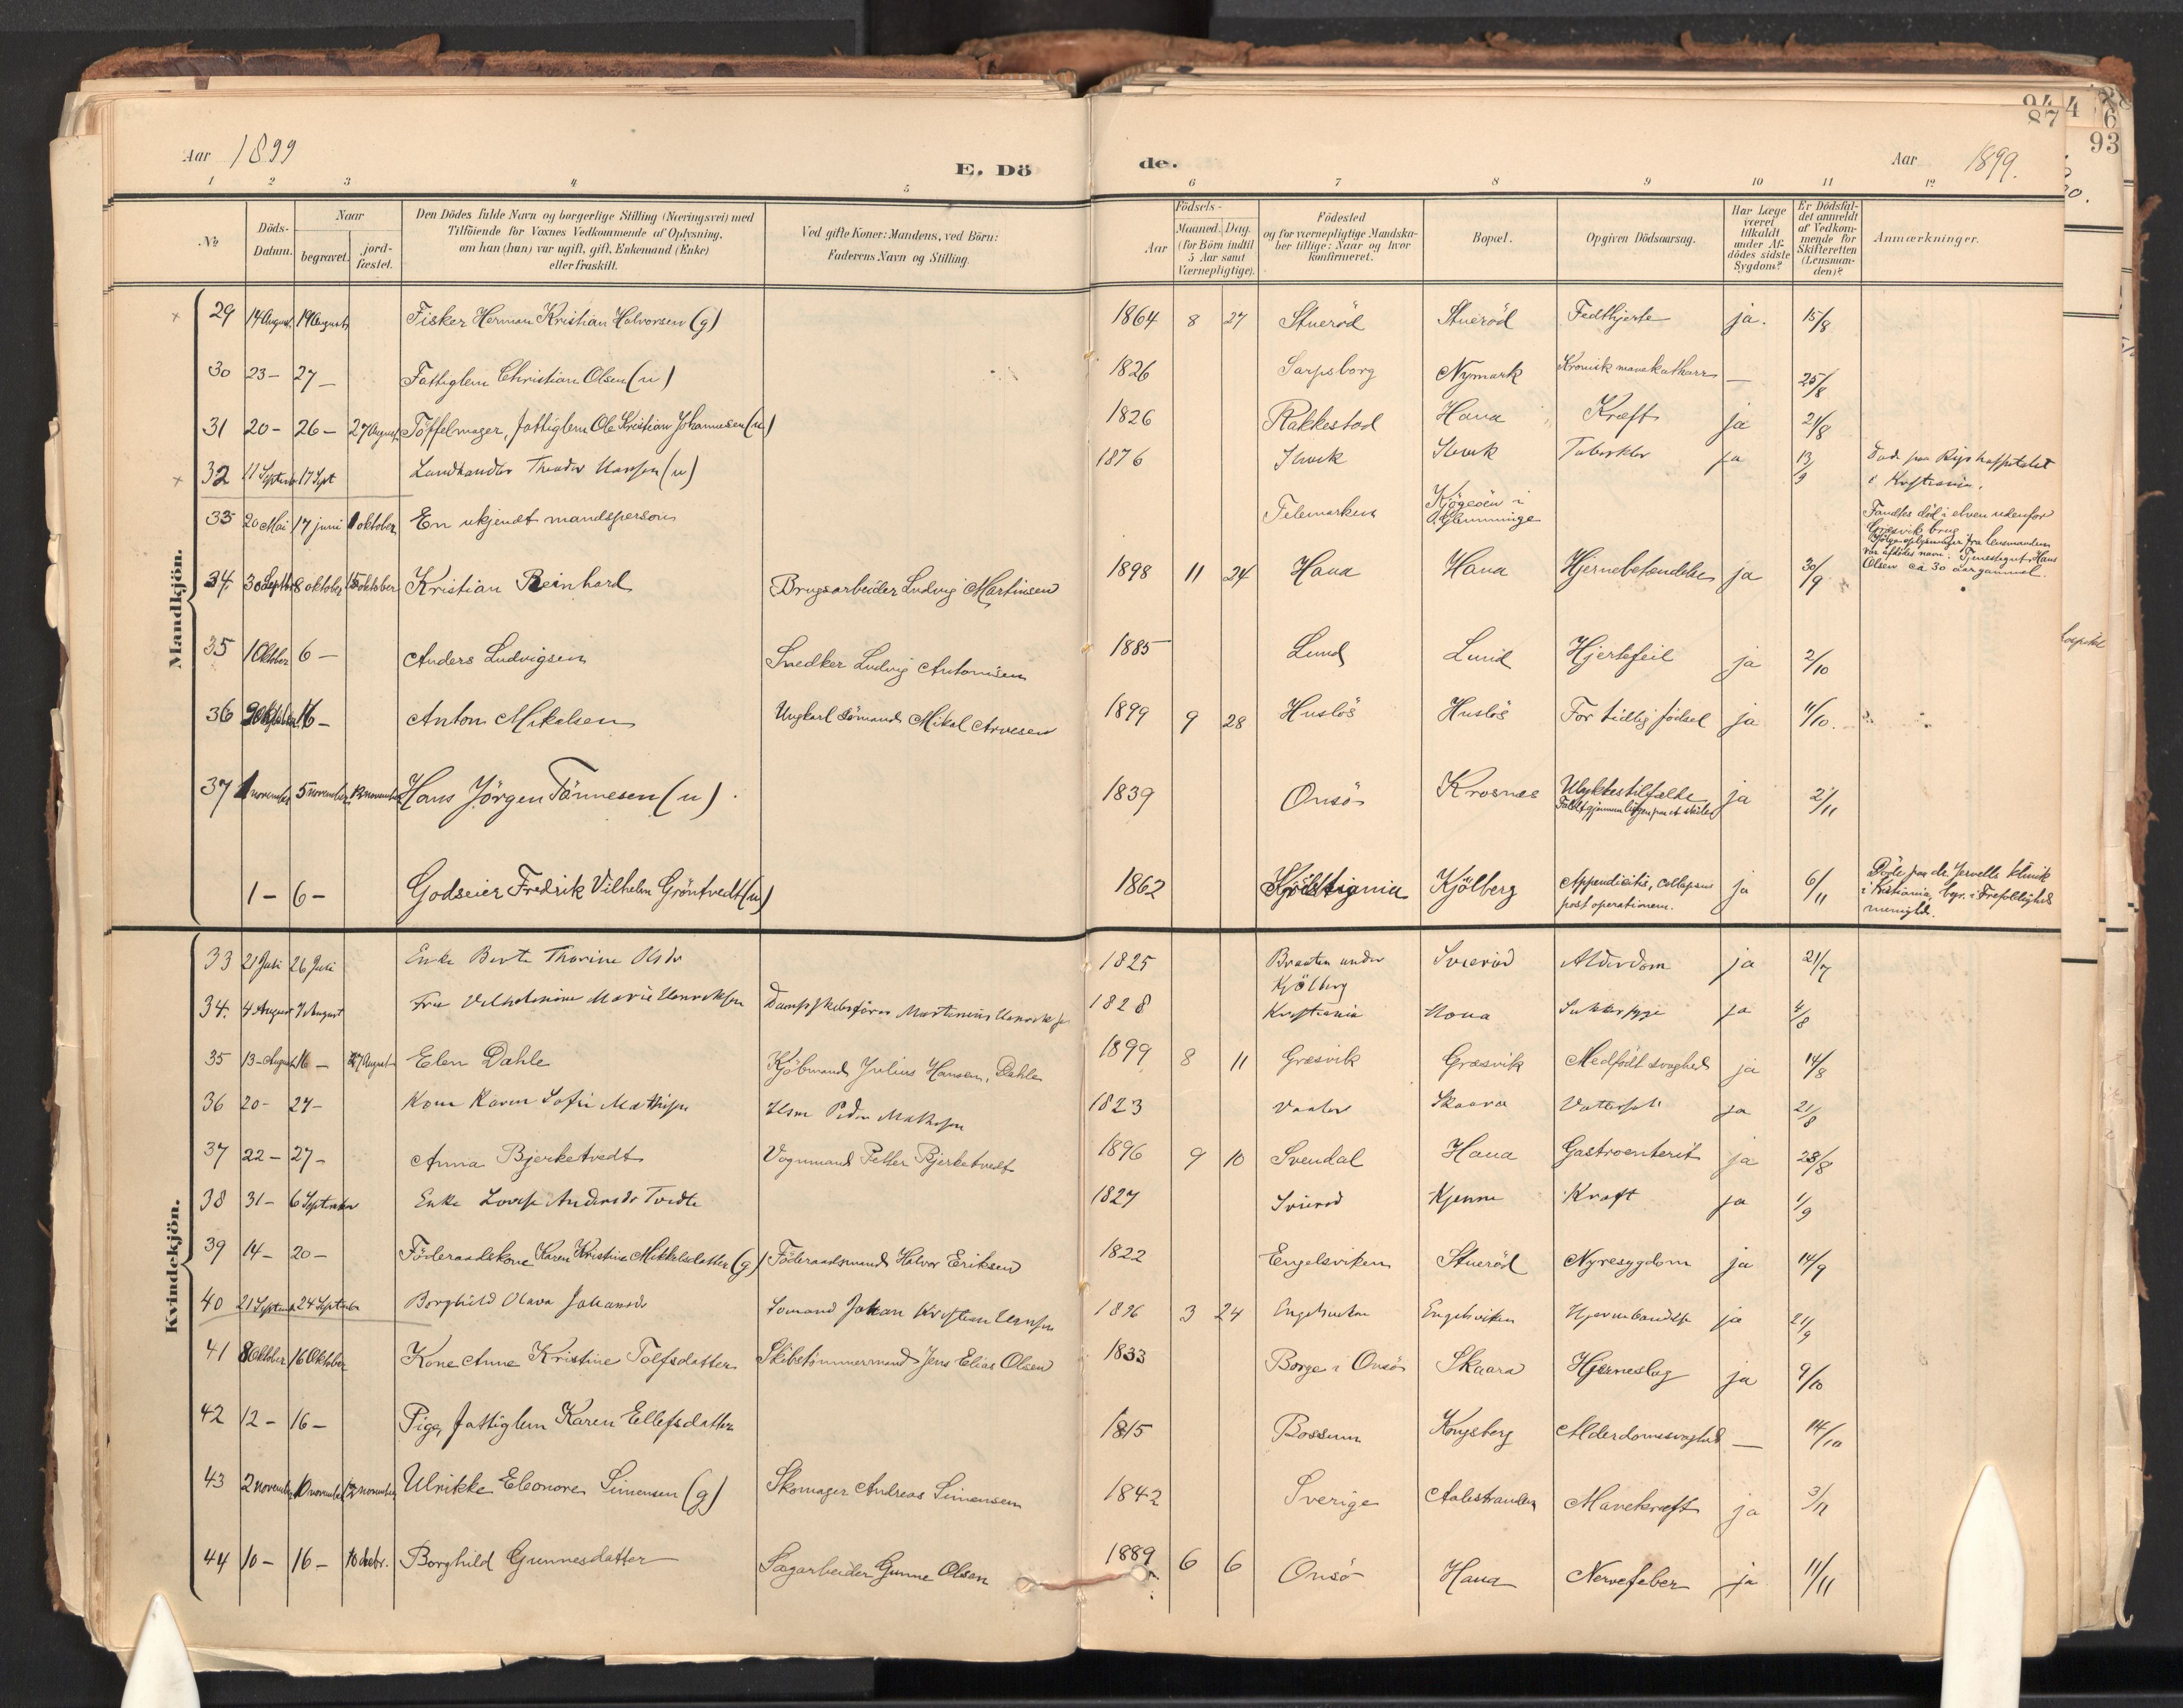 Aar 1899
E. Dö
de.
Aar 1899.
94
87
4
6
93
1 2 3 4 5 6 7 8 9 10 11 12
No
Döds-Datum.
Naar
begravet.
jord-fæstet.
Den Dödes fulde Navn og borgerlige Stilling (Næringsvei) med
Tilföiende for Voxnes Vedkommende af Oplysning,
om han (hun) var ugift, gift, Enkemand (Enke)
eller fraskilt.
Ved gifte Koner: Mandens, ved Börn:
Faderens Navn og Stilling.
Födsels-
Aar
Maaned. Dag.
(for Börn indtil
5 Aar samt
Værnepligtige).
Födested
og for værnepligtige Mandska-
ber tillige: Naar og hvor
konfirmeret.
Bopæl.
Opgiven Dödsaarsag.
Har Læge
været
tilkaldt
under Af-
dödes sidste
Sygdom?
Er Dödsfal-
det anmeldt
af Vedkom-
mende for
Skifteretten
(Lensman-
den)?
Anmærkninger.
Mandkjön.
29 14 August 19 August Fisker Herman Kristian Halvorsen (g) 1864 8 27 Stueröd Stueröd Fedthjerte ja. 15/8
30 23 – 27 – Fattiglem Christian Olsen (u) 1826 Sarpsborg Nymark Kronisk mavekatharr — 25/8
31 20 – 26 – 27 August Töffelmager, fattiglem Ole Kristian Johannesen (u) 1826 Rakkestad Hana Kræft ja 21/8
32 11 Septemb 17 Sept Landhandler Theodor Hansen (u) 1876 Slevik Slevik Tuberkler ja 13/9 Död paa Rigshospitalet
i Kristiania.
33 20 Mai 17 juni 1 oktober En ukjendt mandsperson Telemarken Kjøgeöen i
Glemminge Fandtes död i elven udenfor
Græsvik brug
Ifölge oplysninger fra lensmanden
var afdödes navn: Tjenestegut Hans
Olsen ca 30 aar gammel.
34. 30 Septbr 8 oktober 15 oktober Kristian Reinhard Brugsarbeider Ludvig Martinsen 1898 11 24 Hana Hana Hjernebetændelse ja 30/9
35 1 Oktober 6 – Anders Ludvigsen Snedker Ludvig Antonisen 1885 Lund Lund Hjertefeil ja 2/10
36 9 Oktober 16 – Anton Mikalsen Ungkarl Sömand Mikal Arvesen 1899 9 28 Huslös Huslös For tidlig födsel ja 11/10.
37 1 november 5 november 12 november Hans Jörgen Tönnesen (u). 1839 Onsö Krosnes Ulykkestilfælde
Faldt gjennem ja 2/11
1 – 6 – Godseier Fredrik Vilhelm Gröntvedt (u) 1862 Kristiania Kjölberg Appendicitis, collapsus
post operationem. ja 6/11 Döde paa dr. Jervells klinik
i Kristiania, begr. i Trefoldigheds
menighed.
Kvindekjön.
33 21 Juli 26 Juli Enke Berte Thorine Olsdr 1825 Braaten under
Kjölberg Alderdom ja 21/7
34. 4 August 7 August Frue Vilhelmine Marie Henriksen Dampskibsförer Martinius Henriksen 1828 Kristiania Hona Sukkersyge ja 4/8
35 13 – August 16 – 27 August Elen Dahle Kjöbmand Julius Hansen, Dahle 1899 8 11 Græsvik Græsvik Medfödt svaghed ja 14/8
36 20 – 27 – Kone Karen Sofie Mathisen Peder Mathisen 1823 Vaaler Skaara Vattersot ja 21/8
37 22 – 27 – Anna Bjerketvedt Vognmand Petter Bjerketvedt 1896 9 10 Svendal Hana Gastroenterit ja 28/8
38 31 – 6 September Enke Lovise Andersdr Tvedte 1827 Kjenne Kræft ja 1/9
39 14 – 20 – Föderaadskone Karen Kristine Mikkelsdatter (g) Föderaadsmand Halvor Eriksen 1822 Engelsviken Stueröd Nyresygdom ja 14/9
40 21 Septemb 24 Septemb Borghild Olava Johansdr Sömand Johan Kristian Hansen 1896 3 24 Engelsviken Engelsviken ja 21/9
41 8 Oktober 16 Oktober Kone Anne Kristine Tolfsdatter Skibstömmermand Jens Elias Olsen 1833 Borge i Onsö Skaara Hjerneslag ja 9/10
42 12 – 16 – Pige, fattiglem Karen Ellefsdatter 1815 Bossum Kongsberg Alderdomssvaghed — 14/10
43 2 november 10 november 12 november Ulrikke Eleonore Simensen (g) Skomager Andreas Simensen 1842 Sverige Aalestranden Mavekræft ja 3/11
44 10 – 16 – 10 decbr. Borghild Gunnesdatter Sagarbeider Gunne Olsen 1889 6 6 Onsö Hana Nervefeber ja 11/11